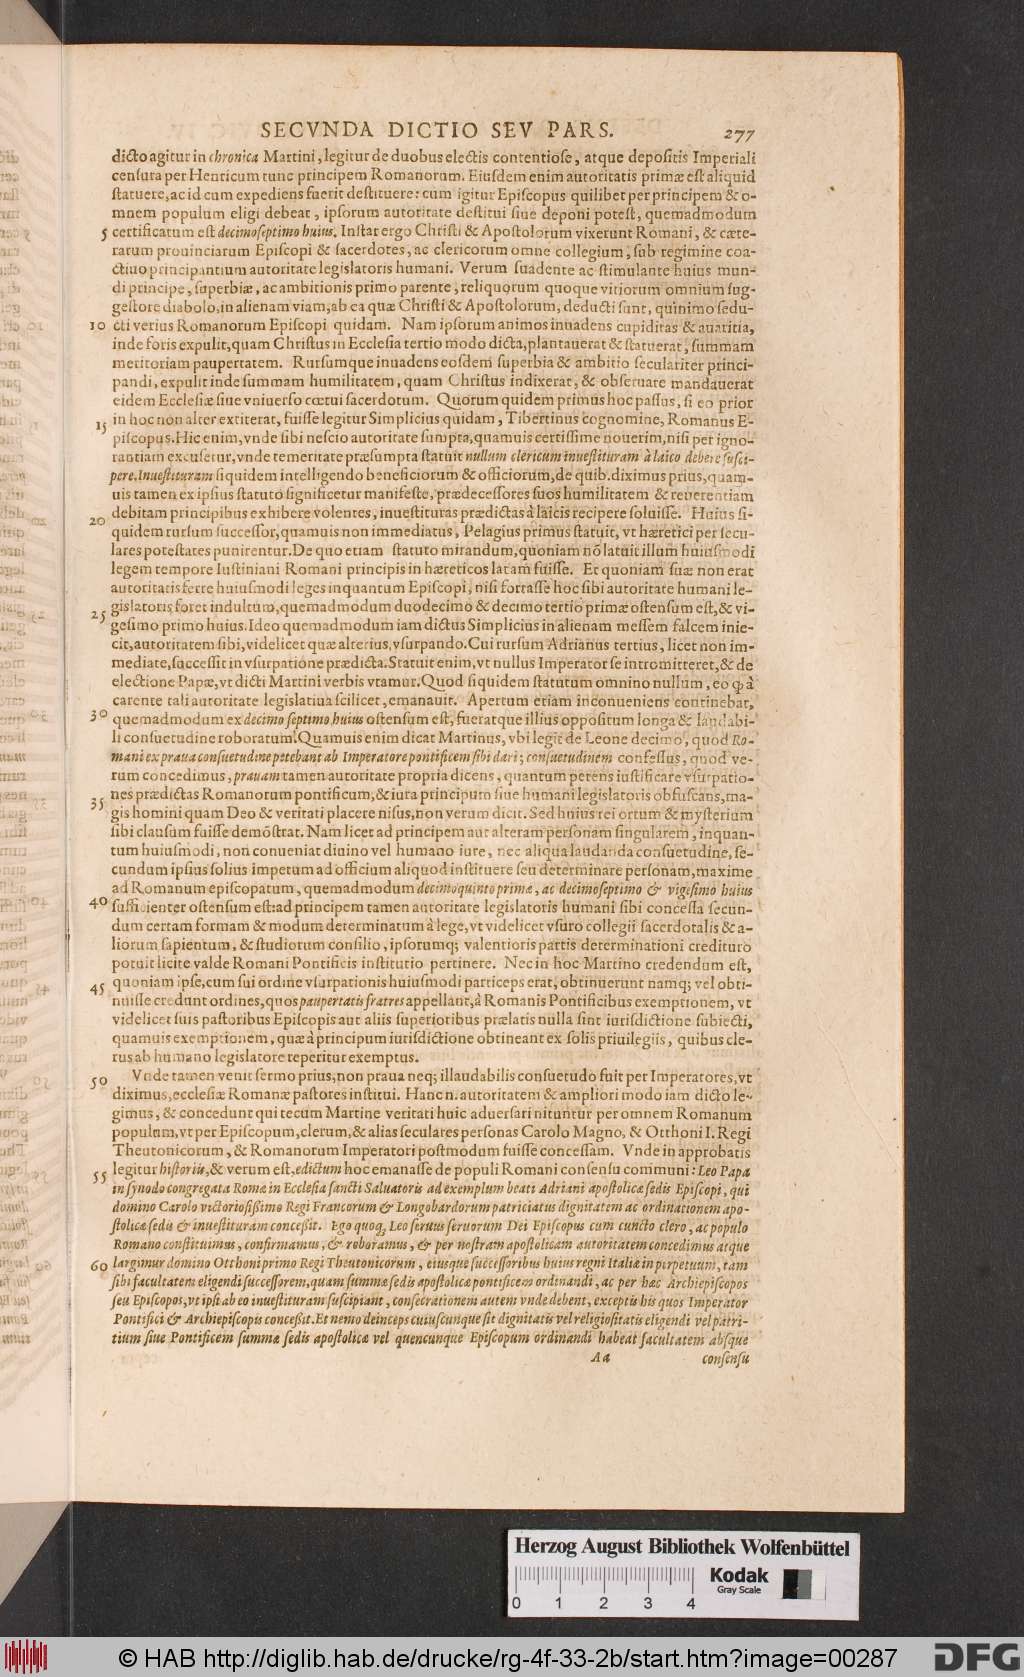 SECVNDA DICTIO SEV PARS. 277
dicto agitur in chronica Martini, legitur de duobus electis contentiose, atque depositis Imperiali
censura per Henricum tunc principem Romanorum. Eiusdem enim autoritatis primæ est aliquid
statuere, ac id cum expediens fuerit destituere: cum igitur Episcopus quilibet per principem & o-
mnem populum eligi debeat, ipsorum autoritate destitui siue deponi potest, quemadmodum
5 certificatum est decimoseptimo huius. Instar ergo Christi & Apostolorum vixerunt Romani, & cæte-
rarum prouinciarum Episcopi & sacerdotes, ac clericorum omne collegium, sub regimine coa-
ctiuo principantium autoritate legislatoris humani. Verum suadente ac stimulante huius mun-
di principe, superbiæ, ac ambitionis primo parente, reliquorum quoque vitiorum omnium sug-
gestore diabolo, in alienam viam, ab ea quæ Christi & Apostolorum, deducti sunt, quinimo sedu-
10 cti verius Romanorum Episcopi quidam. Nam ipsorum animos inuadens cupiditas & auaritia,
inde foris expulit, quam Christus in Ecclesia tertio modo dicta, plantauerat & statuerat, summam
meritoriam paupertatem. Rursumque inuadens eosdem superbia & ambitio seculariter princi-
pandi, expulit inde summam humilitatem, quam Christus indixerat, & obseruare mandauerat
eidem Ecclesiæ siue vniuerso cœtui sacerdotum. Quorum quidem primus hoc passus, si eo prior
15 in hoc non alter extiterat, fuisse legitur Simplicius quidam, Tibertinus cognomine, Romanus E-
piscopus. Hic enim, vnde sibi nescio autoritate sumpta, quamuis certissime nouerim, nisi per igno-
rantiam excusetur, vnde temeritate præsumpta statuit nullum clericum inuestituram à laico debere susci-
pere. Inuestituram siquidem intelligendo beneficiorum & officiorum, de quib. diximus prius, quam-
uis tamen ex ipsius statuto significetur manifeste, prædecessores suos humilitatem & reuerentiam
20 debitam principibus exhibere volentes, inuestituras prædictas à laicis recipere soluisse. Huius si-
quidem rursum successor, quamuis non immediatus, Pelagius primus statuit, vt hæretici per secu-
lares potestates punirentur. De quo etiam statuto mirandum, quoniam nõ latuit illum huiusmodi
legem tempore Iustiniani Romani principis in hæreticos latam fuisse. Et quoniam suæ non erat
autoritatis ferre huiusmodi leges inquantum Episcopi, nisi fortasse hoc sibi autoritate humani le-
25 gislatoris foret indultum, quemadmodum duodecimo & decimo tertio primæ ostensum est, & vi-
gesimo primo huius. Ideo quemadmodum iam dictus Simplicius in alienam messem falcem inie-
cit, autoritatem sibi, videlicet quæ alterius, vsurpando. Cui rursum Adrianus tertius, licet non im-
mediate, successit in vsurpatione prædicta. Statuit enim, vt nullus Imperator se intromitteret, & de
electione Papæ, vt dicti Martini verbis vtamur. Quod siquidem statutum omnino nullum, eo ꝙ à
carente tali autoritate legislatiua scilicet, emanauit. Apertum etiam inconueniens continebat,
30 quemadmodum ex decimo septimo huius ostensum est, fueratque illius oppositum longa & laudabi-
li consuetudine roboratum. Quamuis enim dicat Martinus, vbi legit de Leone decimo, quod Ro-
mani ex praua consuetudine petebant ab Imperatore pontificem sibi dari; consuetudinem confessus, quod ve-
rum concedimus, prauam tamen autoritate propria dicens, quantum potens iustificare vsurpatio-
35 nes prædictas Romanorum pontificum, & iura principum siue humani legislatoris obfuscans, ma-
gis homini quam Deo & veritati placere nisus, non verum dicit. Sed huius rei ortum & mysterium
sibi clausum fuisse demõstrat. Nam licet ad principem aut alteram personam singularem, inquan-
tum huiusmodi, non conueniat diuino vel humano iure, nec aliqua laudanda consuetudine, se-
cundum ipsius solius imperum ad officium aliquod instituere seu determinare personam, maxime
ad Romanum episcopatum, quemadmodum decimoquinto primæ, ac decimoseptimo & vigesimo huius
40 sufficienter ostensum est: ad principem tamen autoritate legislatoris humani sibi concessa secun-
dum certam formam & modum determinatum à lege, vt videlicet vsuro collegii sacerdotalis & a-
liorum sapientum, & studiorum consilio, ipsorumq; valentioris partis determinationi credituro
potuit licite valde Romani Pontificis institutio pertinere. Nec in hoc Martino credendum est,
45 quoniam ipse, cum sui ordine vsurpationis huiusmodi particeps erat, obtinuerunt namq; vel obti-
nuisse credunt ordines, quos paupertatis fratres appellant, à Romanis Pontificibus exemptionem, vt
videlicet suis pastoribus Episcopis aut aliis superioribus prælatis nulla sint iurisdictione subiecti,
quamuis exemptionem, quæ à principum iurisdictione obtineant ex solis priuilegiis, quibus cle-
rus ab humano legislatore reperitur exemptus.
50 Vnde tamen venit sermo prius, non praua neq; illaudabilis consuetudo fuit per Imperatores, vt
diximus, ecclesiæ Romanæ pastores institui. Hanc n. autoritatem & ampliori modo iam dicto le-
gimus, & concedunt qui tecum Martine veritati huic aduersari nituntur per omnem Romanum
populum, vt per Episcopum, clerum, & alias seculares personas Carolo Magno, & Otthoni I. Regi
Theutonicorum, & Romanorum Imperatori postmodum fuisse concessam. Vnde in approbatis
55 legitur historiis, & verum est, edictum hoc emanasse de populi Romani consensu communi: Leo Papa
in synodo congregata Romæ in Ecclesia sancti Saluatoris ad exemplum beati Adriani apostolicæ sedis Episcopi, qui
domino Carolo victoriosissimo Regi Francorum & Longobardorum patriciatus dignitatem ac ordinationem apo-
stolicæ sedis & inuestituram concessit. Ego quoq; Leo seruus seruorum Dei Episcopus cum cuncto clero, ac populo
Romano constituimus, confirmamus, & roboramus, & per nostram apostolicam autoritatem concedimus atque
60 largimur domino Otthoni primo Regi Theutonicorum, eiusque successoribus huius regni Italiæ in perpetuum, tam
sibi facultatem eligendi successorem, quam summæ sedis apostolicæ pontificem ordinandi, ac per hæc Archiepiscopos
seu Episcopos, vt ipsi ab eo inuestituram suscipiant, consecrationem autem vnde debent, exceptis his quos Imperator
Pontifici & Archiepiscopis concessit. Et nemo deinceps cuiuscunque sit dignitatis vel religiositatis eligendi vel patri-
tium siue Pontificem summæ sedis apostolicæ vel quencunque Episcopum ordinandi habeat facultatem absque
Aa consensu
Herzog August Bibliothek Wolfenbüttel
Kodak
Gray Scale
0 1 2 3 4
© HAB http://diglib.hab.de/drucke/rg-4f-33-2b/start.htm?image=00287
DFG